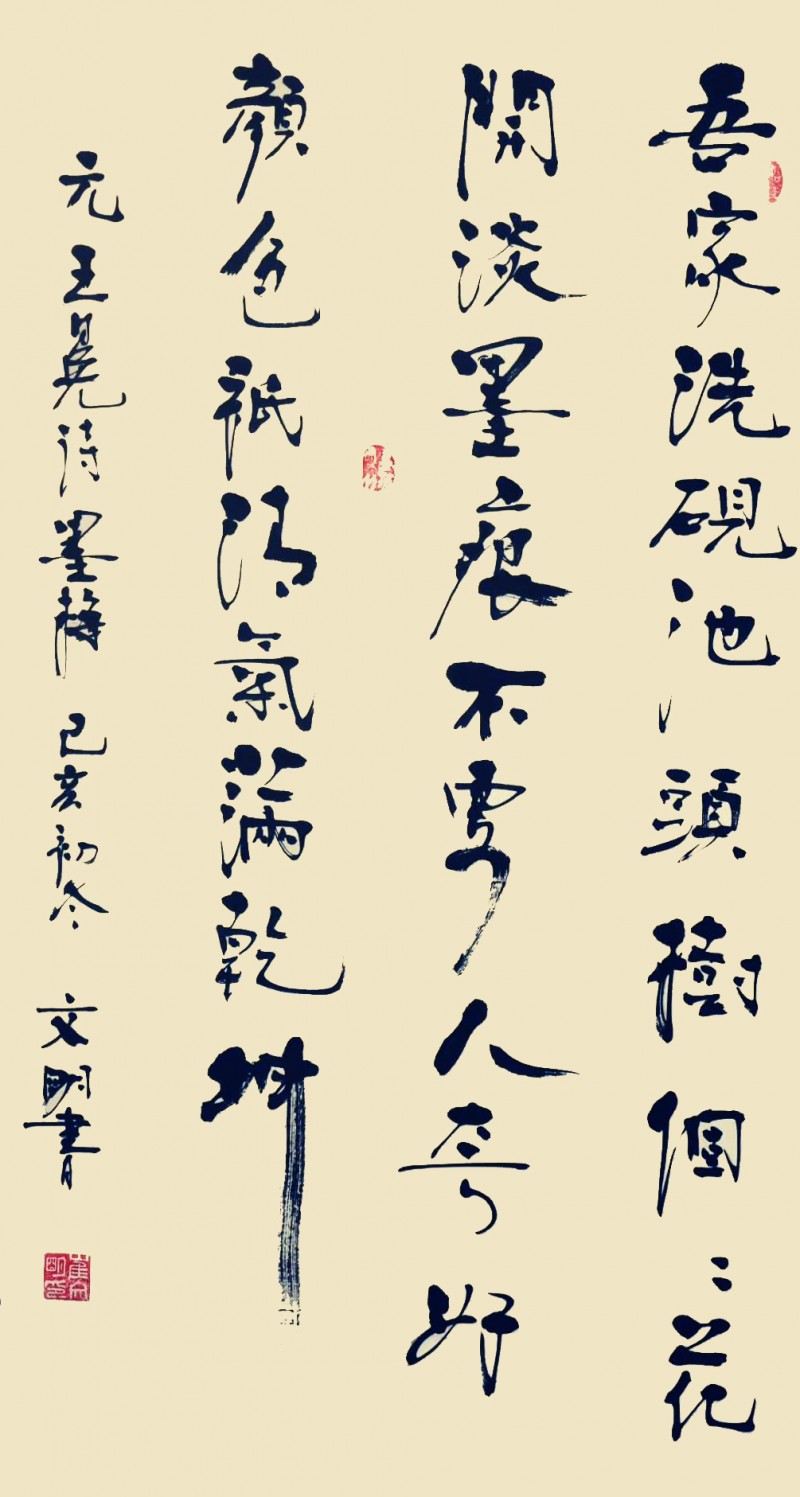 吾家洗硯池頭樹個〻花
開淡墨痕不要人夸好
顏色祇清氣滿乾坤
元王冕诗墨梅 己亥初冬 文明書